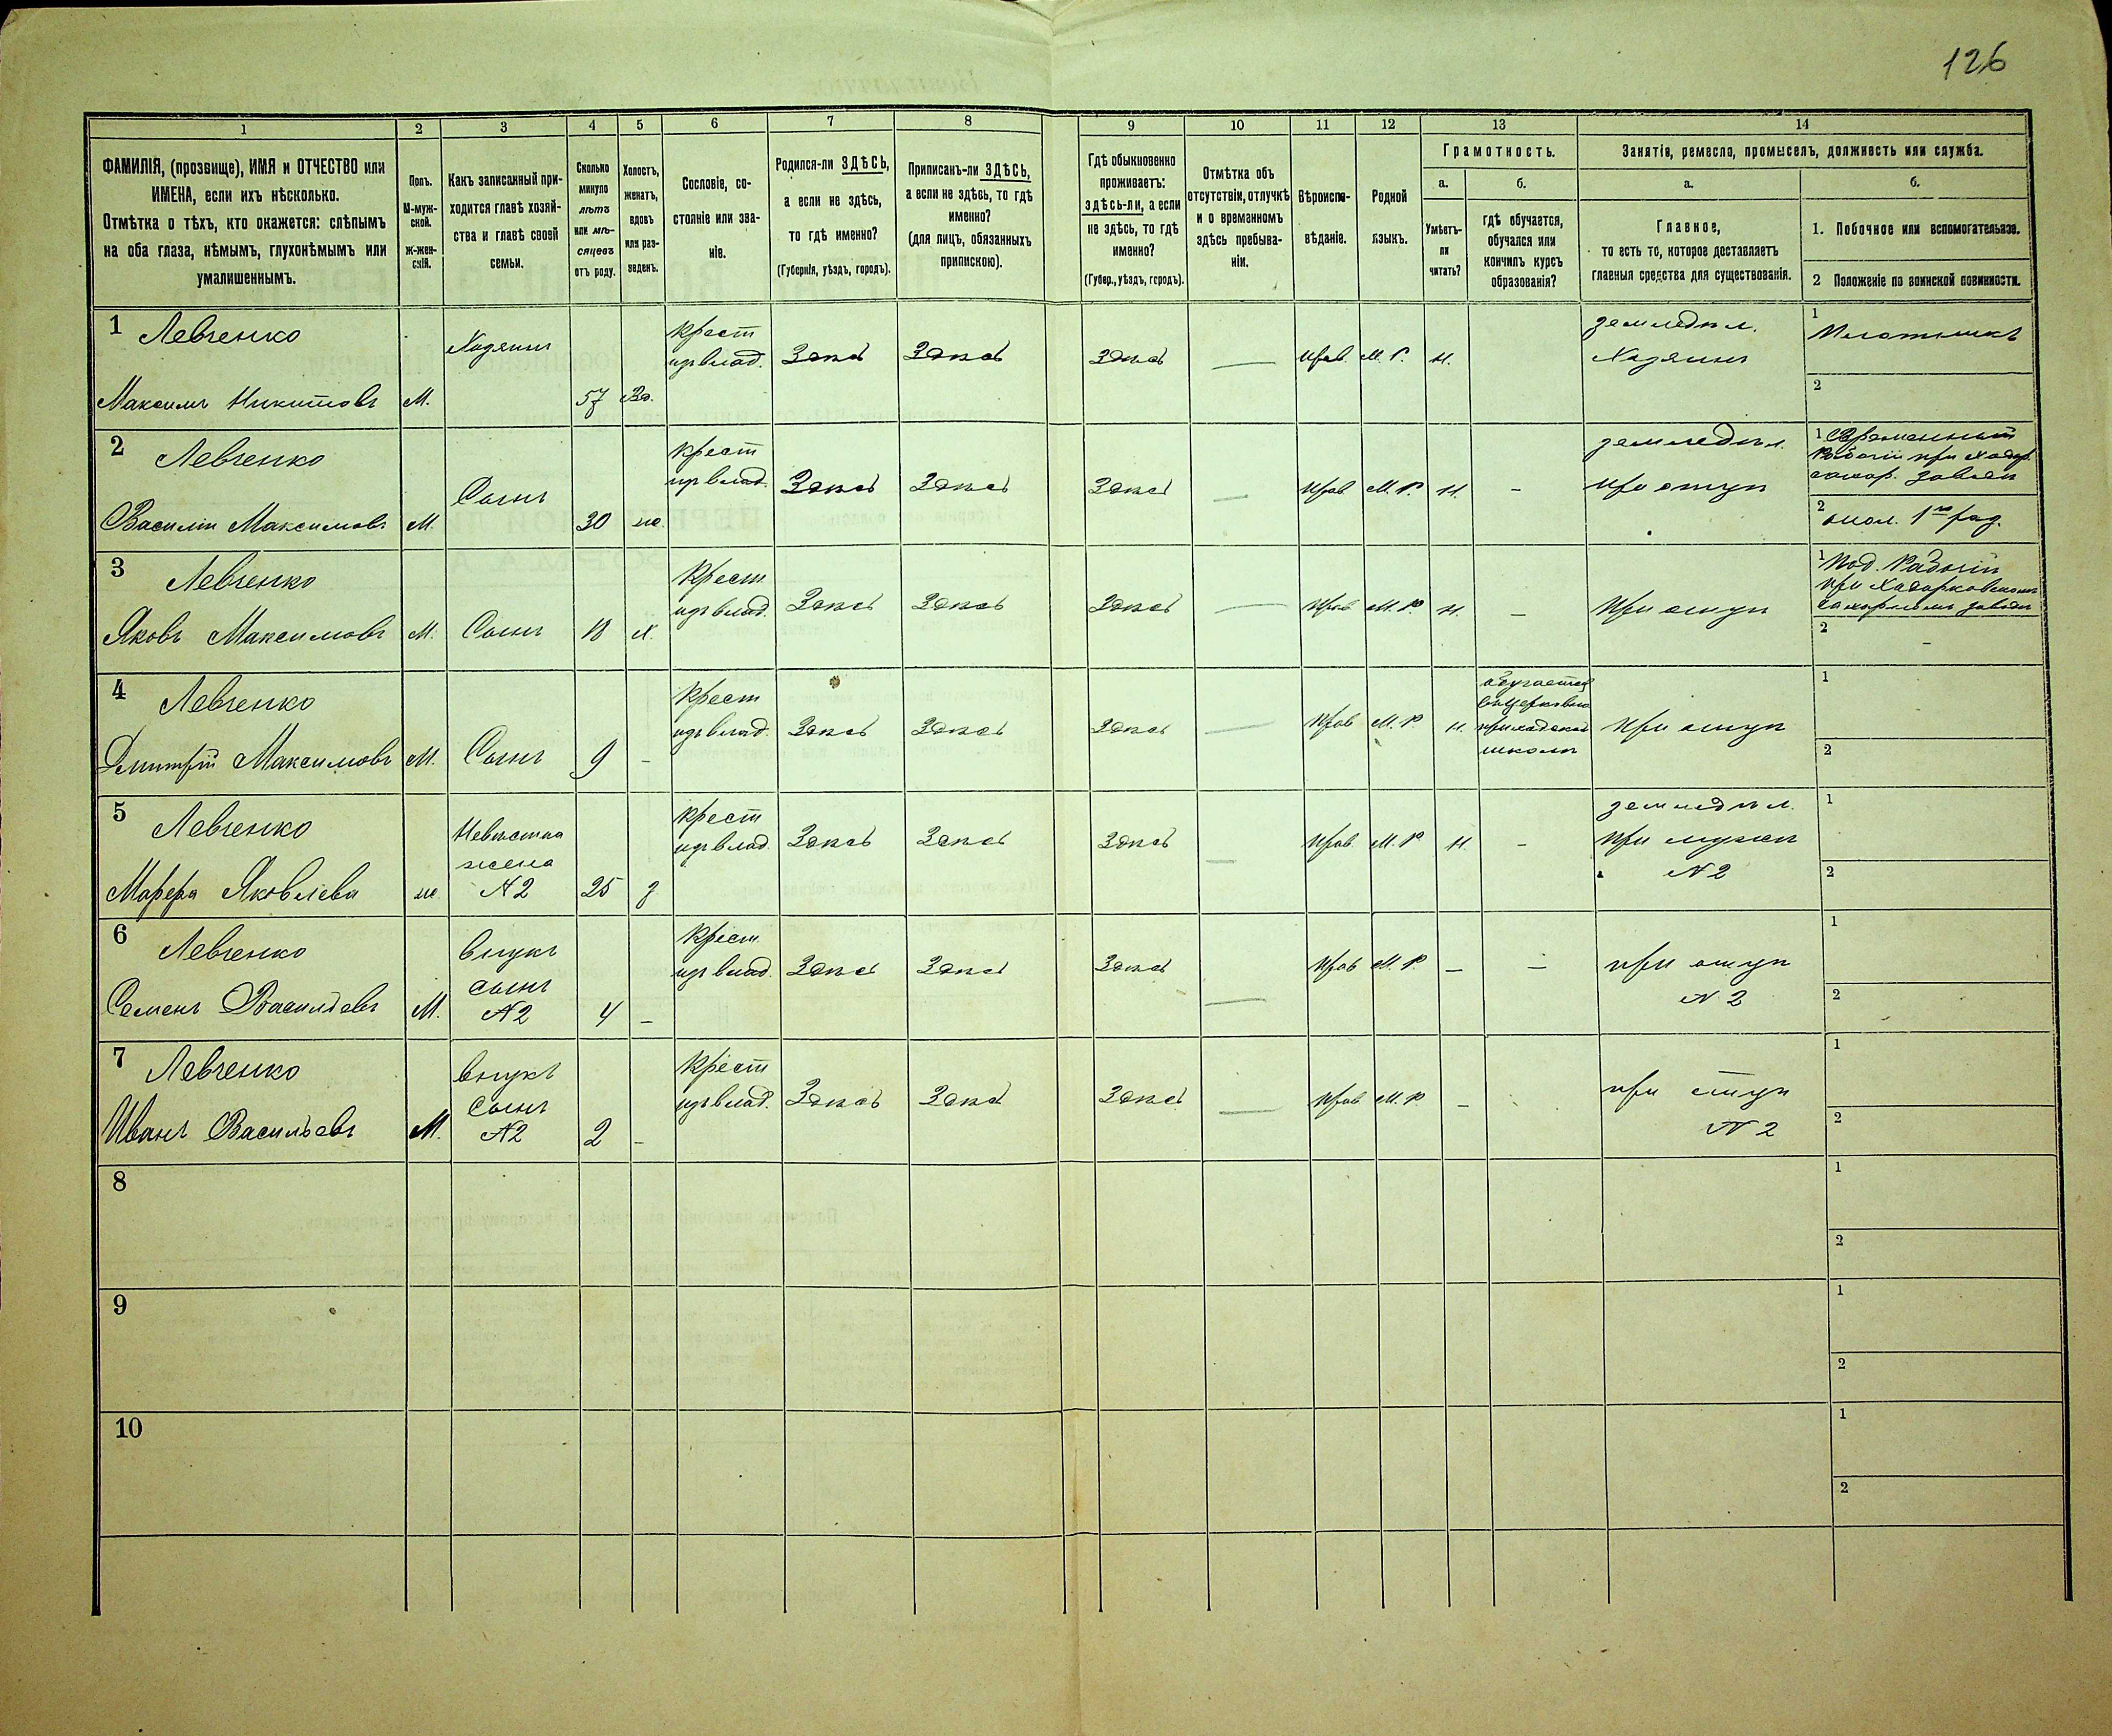 126
1 2 3 4 5 6 7 8 9 10 11 12 13 14
ФАМИЛІЯ, (прозвище), ИМЯ и ОТЧЕСТВО или
ИМЕНА, если ихъ нѣсколько.
Отмѣтка о тѣхъ, кто окажется: слѣпымъ
на оба глаза, нѣмымъ, глухонѣмымъ или
умалишеннымъ.
Полъ.
М-муж-
ской.
Ж-жен-
скій.
Какъ записанный при-
ходится главѣ хозяй-
ства и главѣ своей
семьи.
Сколько
минуло
лѣтъ
или мѣ-
сяцевъ
отъ роду.
Холостъ,
женатъ,
вдовъ
или раз-
веденъ.
Сословіе, со-
стояніе или зва-
ніе.
Родился-ли ЗДѢСЬ,
а если не здѣсь,
то гдѣ именно?
(Губернія, уѣздъ, городъ).
Приписанъ-ли ЗДѢСЬ,
а если не здѣсь, то гдѣ
именно?
(для лицъ, обязанныхъ
припискою).
Гдѣ обыкновенно
проживаетъ:
здѣсь-ли, а если
не здѣсь, то гдѣ
именно?
(Губер., уѣздъ, городъ).
Отмѣтка объ
отсутствіи, отлучкѣ
и о временномъ
здѣсь пребыва-
ніи.
Вѣроиспо-
вѣданіе.
Родной
языкъ.
Грамотность.
а.
Умѣетъ-
ли
читать?
б.
гдѣ обучается,
обучался или
кончилъ курсъ
образованія?
Занятіе, ремесло, промыселъ, должность или служба.
а.
Главное,
то есть то, которое доставляетъ
главныя средства для существованія.
б.
1. Побочное или вспомогательное.
2 Положеніе по воинской повинности.
1 Левченко
Максимъ Никитовъ М.
Хозяинъ
57 Вд.
Крест
изъ влад.
Здесь Здесь Здесь — Прав. М. Р. Н.
земледѣл.
Хозяинъ
1
Плотникъ
2
2 Левченко
Василій Максимовъ М.
Сынъ
30 ж.
Крест
изъ влад.
Здесь Здесь Здесь — Прав М. Р. Н. -
земледѣл.
при отцѣ
1 Временный
Рабочій при Ходор.
сахар. заводѣ
2
опол. 1го раз.
3 Левченко
Яковъ Максимовъ М. Сынъ 18 х.
Крест.
изъ влад.
Здесь Здесь Здесь — Прав М. Р. Н. -
При отцѣ
1 Под. Рабочій
при Ходорковскомъ
сахарномъ заводѣ
2
-
4 Левченко
Дмитрій Максимовъ М. Сынъ 9 -
Крест
изъ влад.
Здесь Здесь Здесь — Прав М. Р Н
обучается
въ церковно
приходской
школѣ
При отцѣ
1
2
5 Левченко
Марфа Яковлева ж.
Невѣстка
жена
№2
25 з
Крест
изъ влад.
Здесь Здесь Здесь — Прав М. Р Н -
земледѣл.
при мужѣ
№2
1
2
6 Левченко
Семенъ Васильевъ М.
внукъ
сынъ
№2
4 -
Крест.
изъ влад.
Здесь Здесь Здесь — Прав М. Р. - -
при отцѣ
№2
1
2
7 Левченко
Иванъ Васильевъ М.
внукъ
сынъ
№2
2 -
Крест
изъ влад.
Здесь Здесь Здесь — Прав М. Р -
при отцѣ
№2
1
2
8
1
2
9
1
2
10
1
2